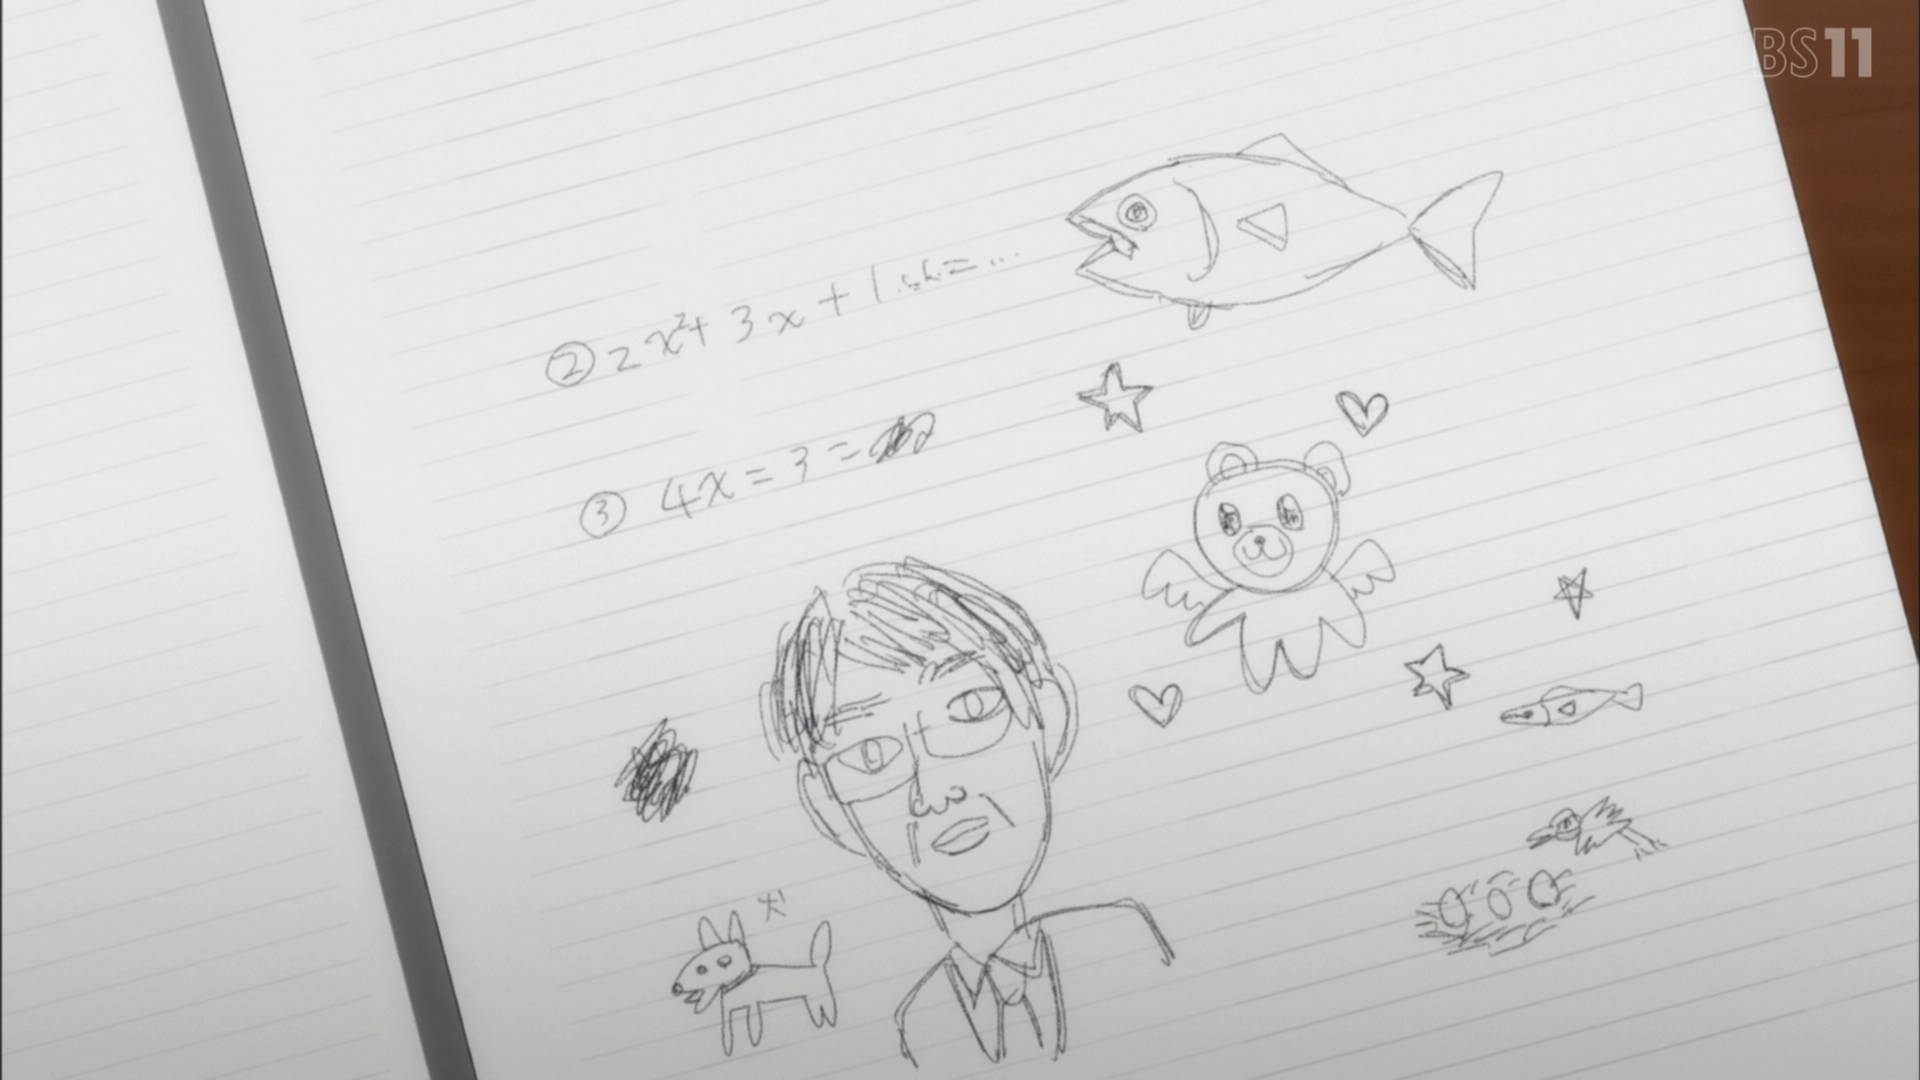 BS11
② 2x²+3x+1
③ 4x=3=
犬